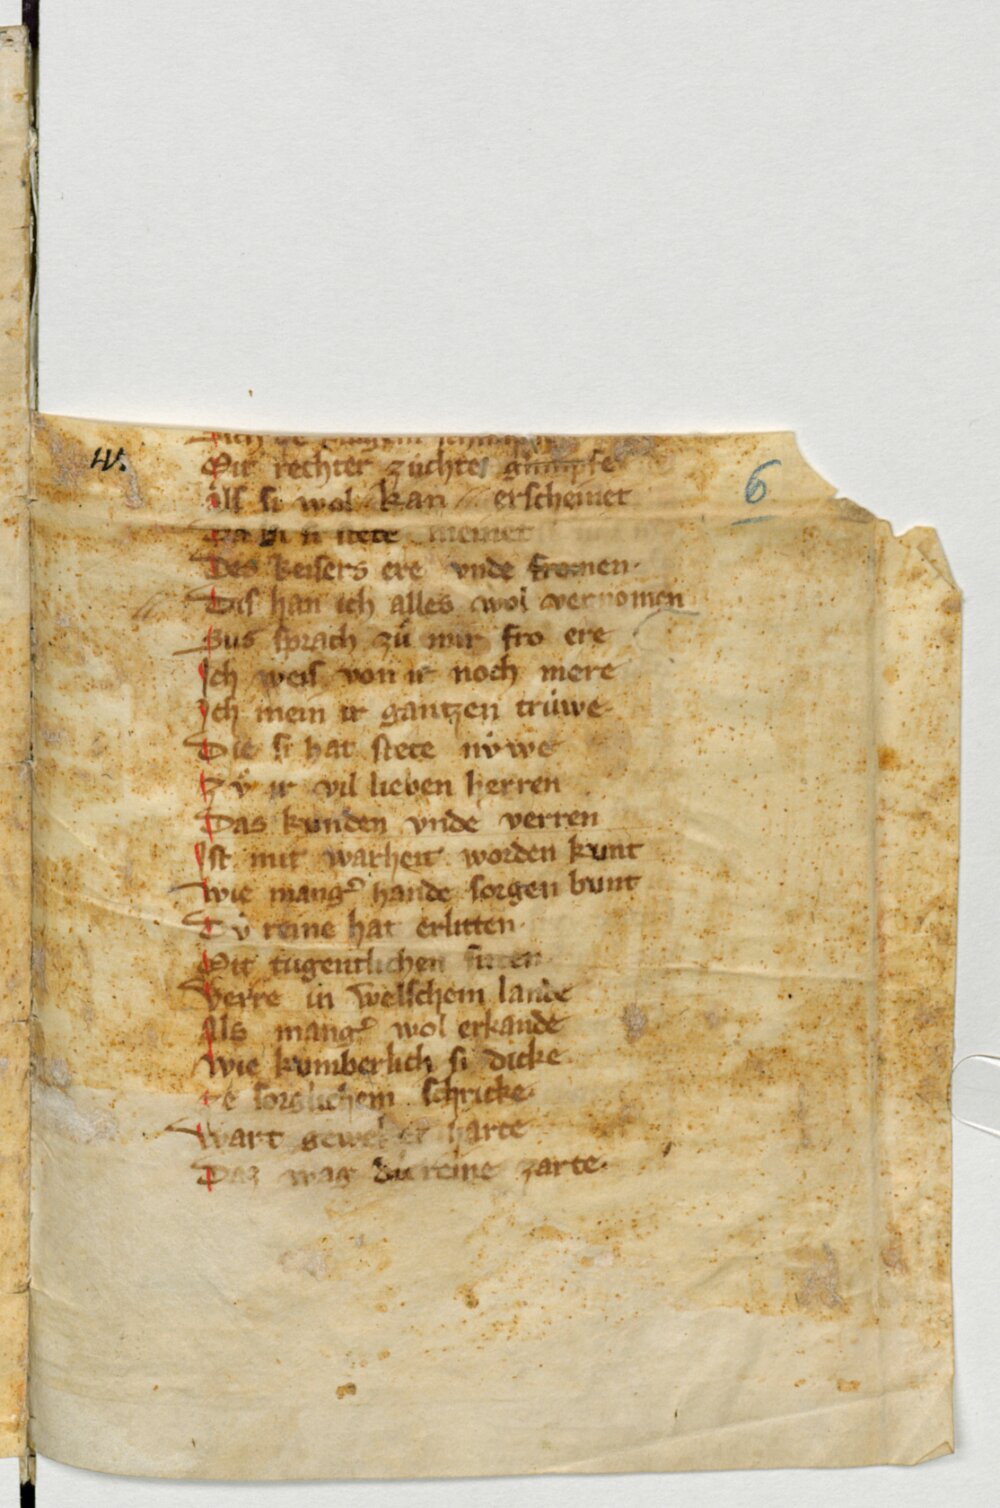 IV.
6
Mit rechter züchte
Als si wol kan erscheinet
si stete meinet
Des keisers ere vnde fromen.
Dis han ich alles wol vernomen
Sus sprach zů mir fro ere
Ich weis von ir noch mere
Ich mein ir gantzen trüwe.
Die si hat stete nüwe
Zv̊ ir vil lieben herren
Das kunden vnde verren
Ist mit warheit worden kunt
Wie mangˀ hande sorgen bunt
Dv̇ reine hat erlitten.
Mit tugentlichen sitten
Verre in welschem lande
Als mangˀ wol erkande
Wie kumberlich si dicke.
sorglichem schricke.
Wart harte
Daz was dü reine zarte.